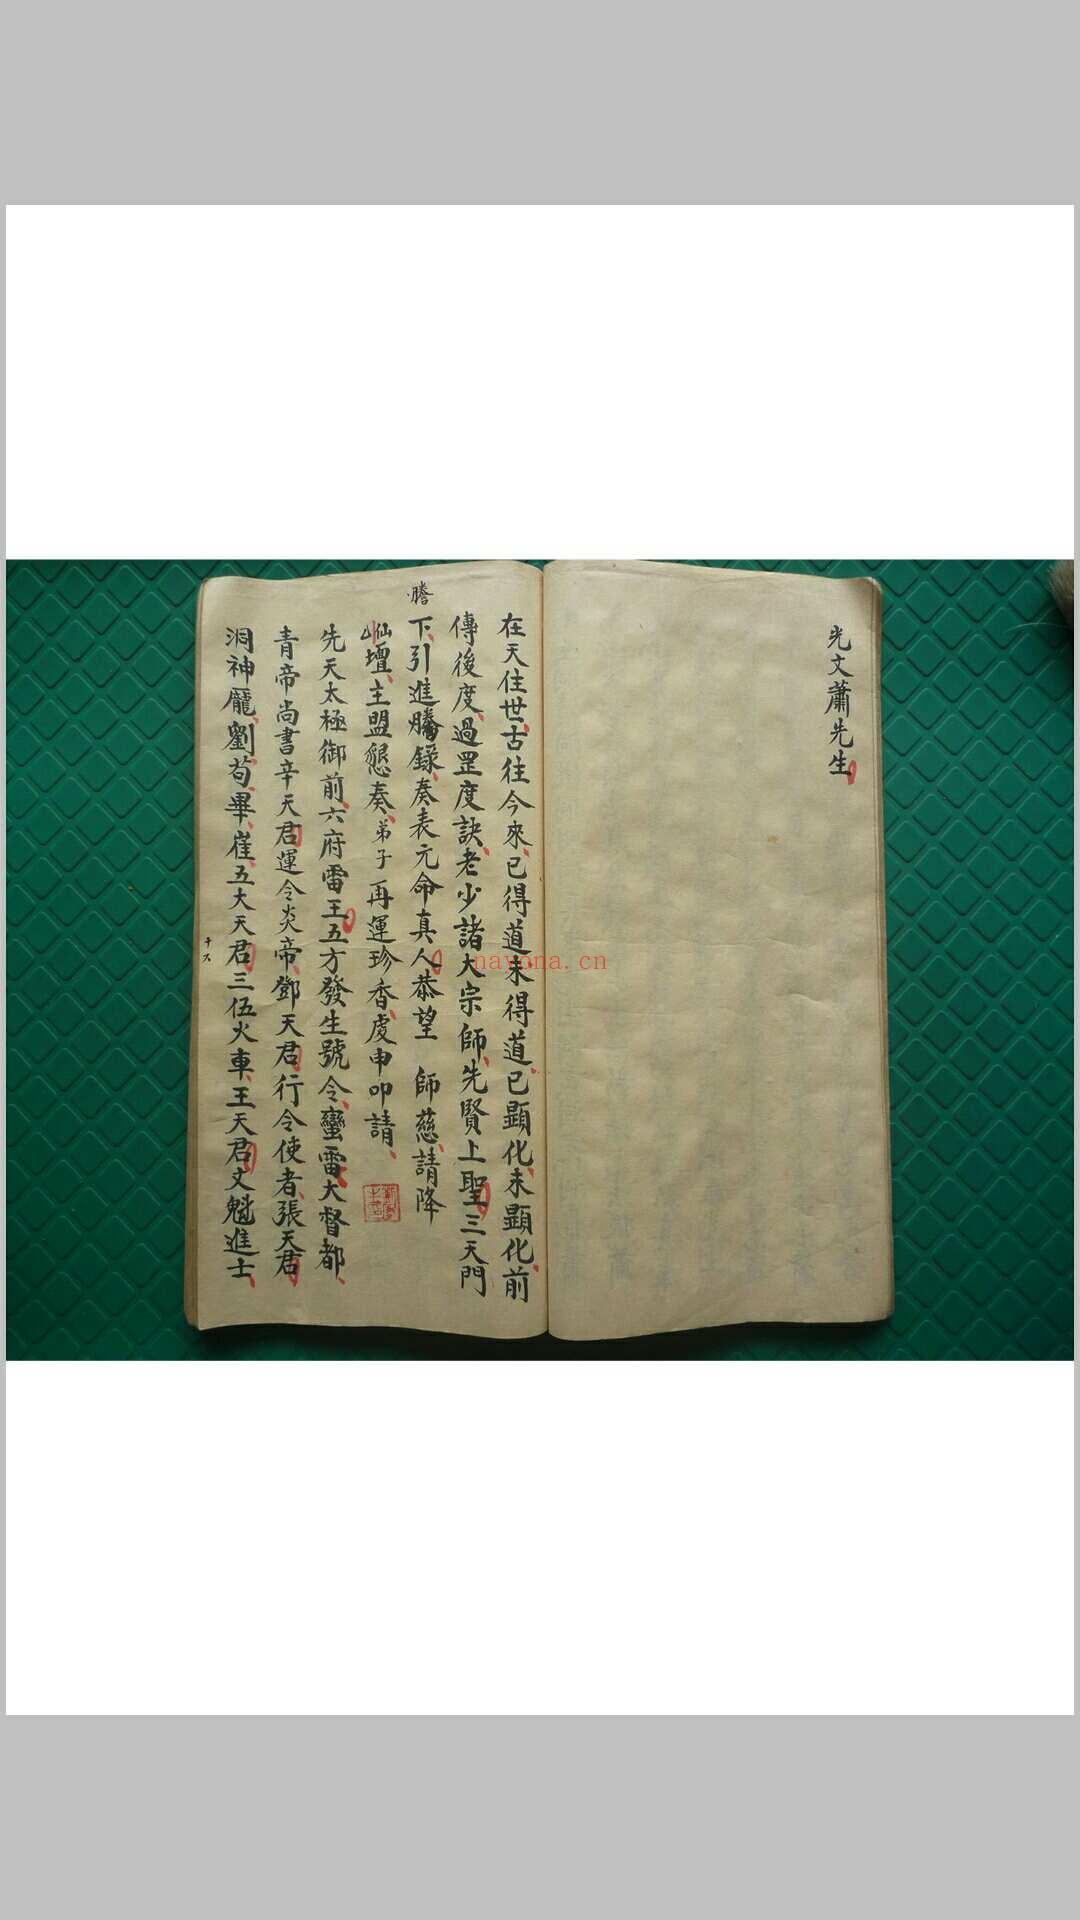 光文蕭先生
在天住世古往今來已得道未得道已顯化未顯化前
傳後度過罡度訣老少諸大宗師先賢上聖三天門
謄
下引進騰錄奏表元命真人恭望 師慈請降
仙壇主盟懇奏弟子再運珍香虔申叩請
先天太極御前六府雷王五方發生號令蠻雷大督都
青帝尚書辛天君運令炎帝鄧天君行令使者張天君
洞神龐劉苟畢崔五大天君三伍火車王天君文魁進士
十六
nayona.cn